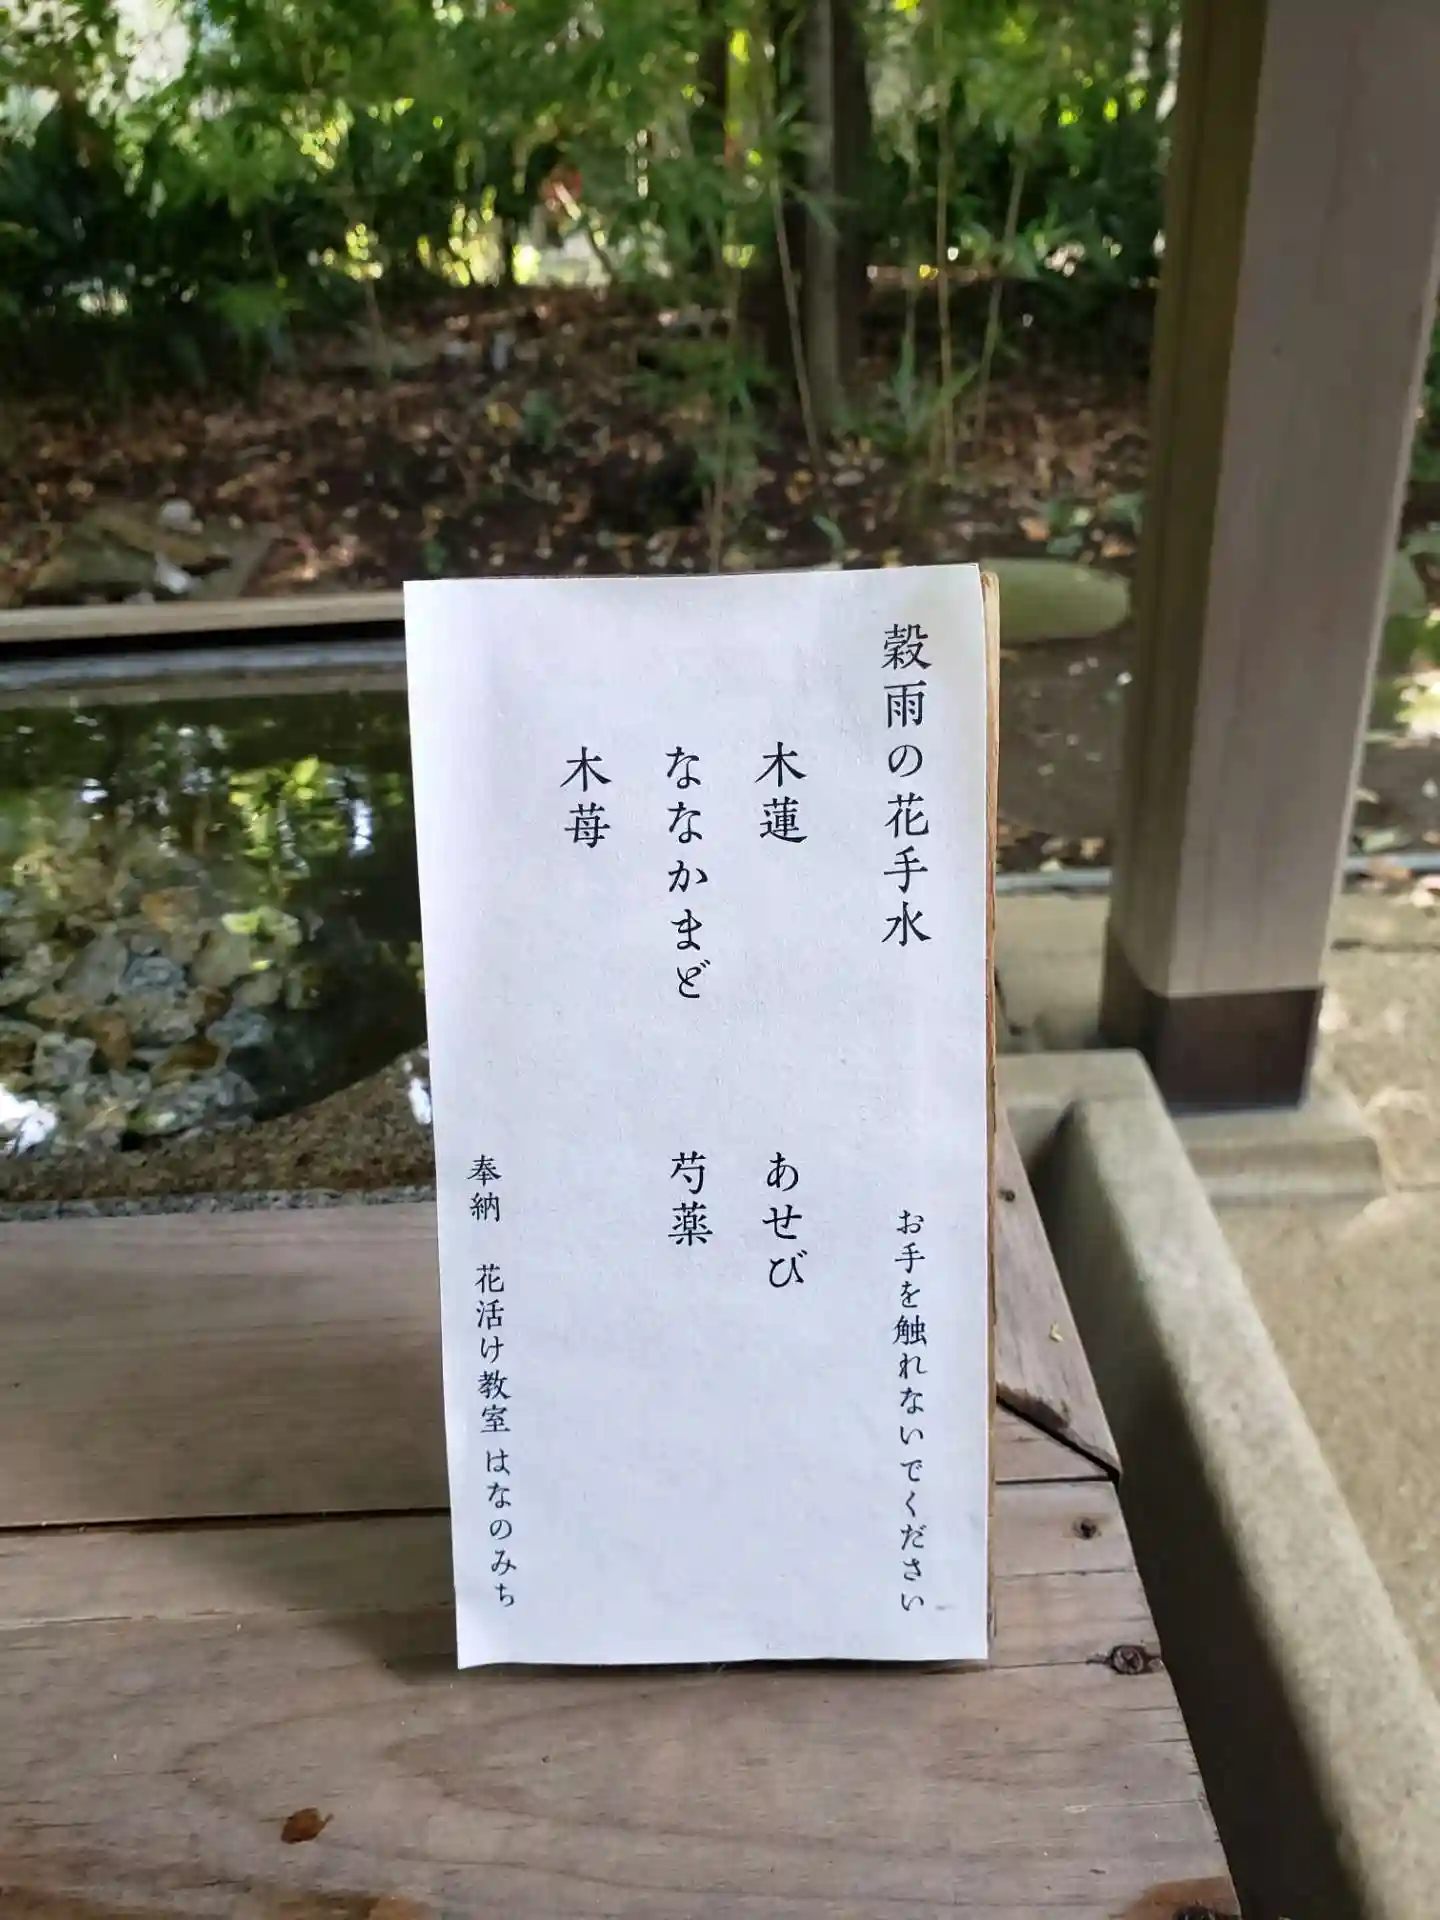 穀雨の花手水
お手を触れないでください
木蓮
あせび
ななかまど
芍薬
木苺
奉納 花活け教室 はなのみち